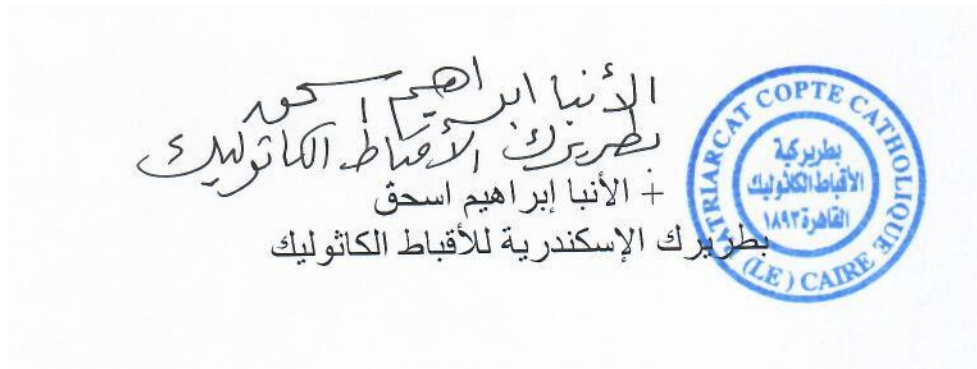 الأنبا ابراهيم اسحق
بطريرك الأقباط الكاثوليك
+ الأنبا إبراهيم اسحق
بطريرك الإسكندرية للأقباط الكاثوليك
PATRIARCAT COPTE CATHOLIQUE
(LE) CAIRE
بطريركية
الأقباط الكاثوليك
القاهرة ١٨٩٣